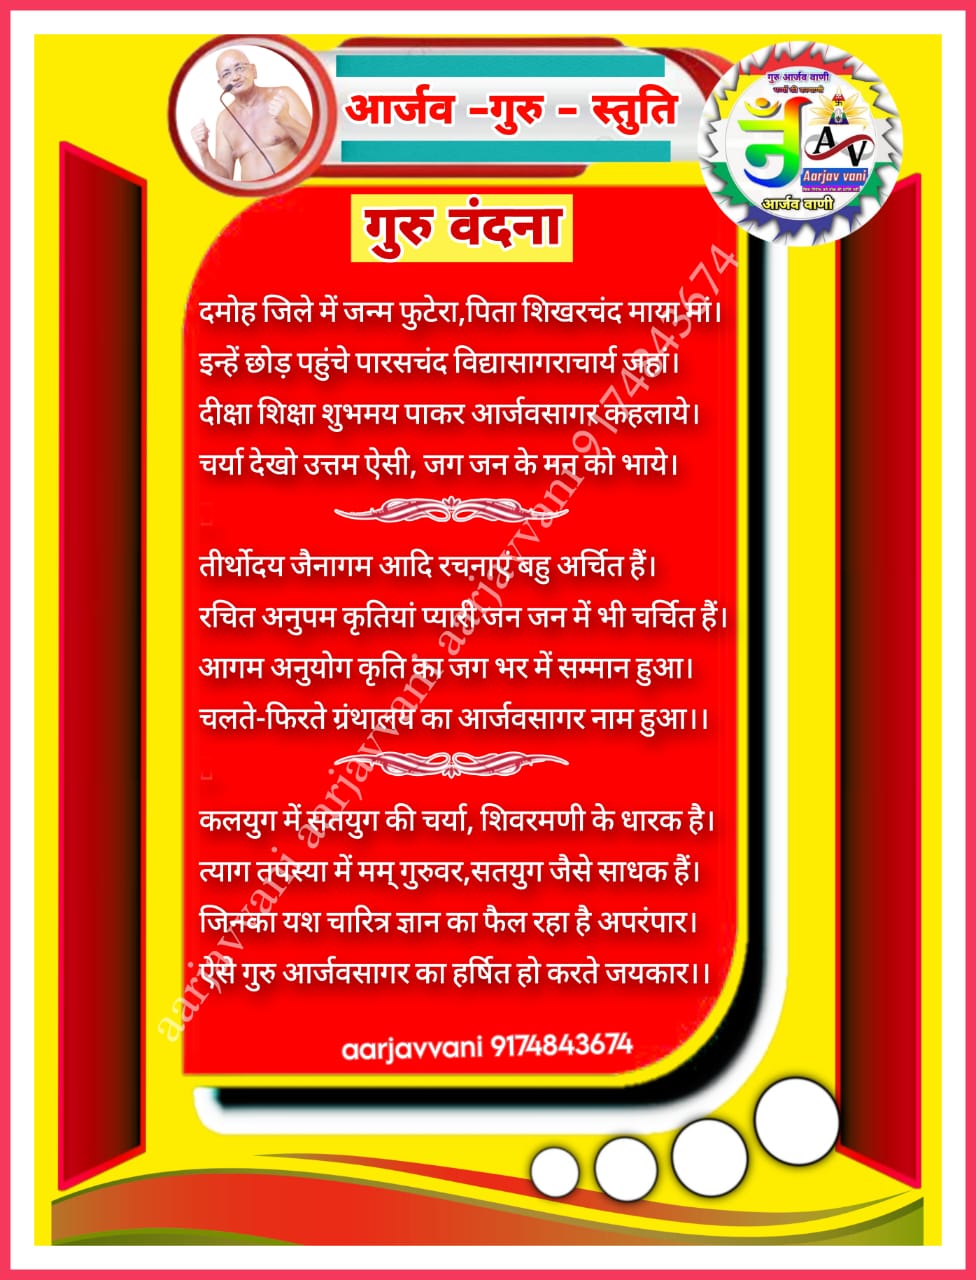 आर्जव –गुरु – स्तुति
गुरु आर्जव वाणी
Aarjav vani
आर्जव वाणी
AV
गुरु वंदना
दमोह जिले में जन्म फुटेरा,पिता शिखरचंद माया मां।
इन्हें छोड़ पहुंचे पारसचंद विद्यासागराचार्य जहां।
दीक्षा शिक्षा शुभमय पाकर आर्जवसागर कहलाये।
चर्या देखो उत्तम ऐसी, जग जन के मन को भाये।
तीर्थोदय जैनागम आदि रचनाएं बहु अर्चित हैं।
रचित अनुपम कृतियां प्यारी जन जन में भी चर्चित हैं।
आगम अनुयोग कृति का जग भर में सम्मान हुआ।
चलते-फिरते ग्रंथालय का आर्जवसागर नाम हुआ।।
कलयुग में सतयुग की चर्या, शिवरमणी के धारक है।
त्याग तपस्या में मम् गुरुवर,सतयुग जैसे साधक हैं।
जिनका यश चारित्र ज्ञान का फैल रहा है अपरंपार।
ऐसे गुरु आर्जवसागर का हर्षित हो करते जयकार।।
aarjavvani 9174843674
aarjavvani aarjavvani aarjavvani 9174843674